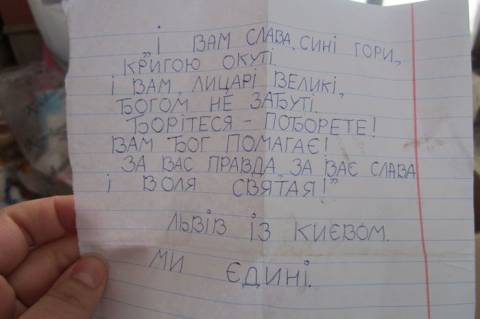 „І ВАМ СЛАВА, СИНІ ГОРИ,
КРИГОЮ ОКУТІ.
І ВАМ, ЛИЦАРІ ВЕЛИКІ,
БОГОМ НЕ ЗАБУТІ.
БОРІТЕСЯ – ПОБОРЕТЕ!
ВАМ БОГ ПОМАГАЄ!
ЗА ВАС ПРАВДА, ЗА ВАС СЛАВА
І ВОЛЯ СВЯТАЯ!”
ЛЬВІВ ІЗ КИЄВОМ.
МИ ЄДИНІ.